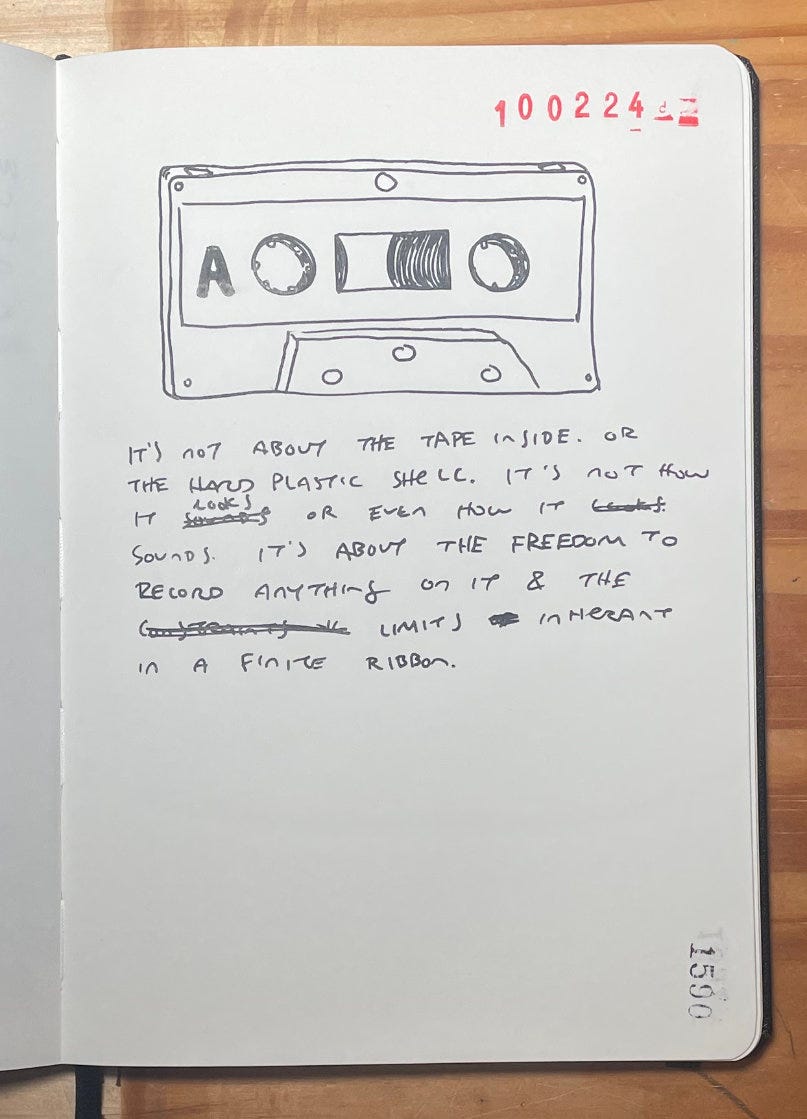 100224
A
IT'S NOT ABOUT THE TAPE INSIDE. OR
THE HARD PLASTIC SHELL. IT'S NOT HOW
IT LOOKS OR EVEN HOW IT
SOUNDS. IT'S ABOUT THE FREEDOM TO
RECORD ANYTHING ON IT & THE
LIMITS INHERANT
IN A FINITE RIBBON.
1590